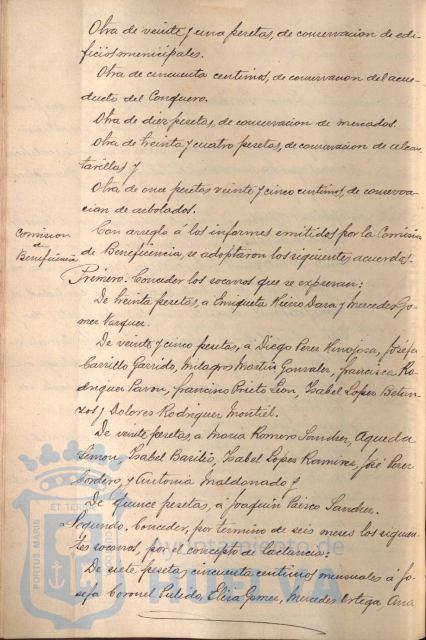 Otra de veinte y una pesetas, de conservacion de edi-
ficios municipales.
Otra de cincuenta centimos, de conservacion del acue-
ducto del Conquero.
Otra de diez pesetas, de conservacion de mercados.
Otra de treinta y cuatro pesetas, de conservacion de alcan-
tarillas y
Otra de once pesetas veinte y cinco centimos, de conserva-
cion de arbolados.
Comision
de
Beneficencia
Con arreglo á los informes emitidos por la Comision
de Beneficencia, se adoptaron los siguientes acuerdos.
Primero. Conceder los socorros que se expresan:
De treinta pesetas, a Enriqueta Daza y Mercedes Go-
mez Vazquez.
De veinte y cinco pesetas, á Diego Perez Hinojosa, Josefa
Carrillo Garrido, Milagros Martin Gonzalez, Francisca Ro-
driguez Pavon, Francisco Prieto Leon, Isabel Lopez Betan-
zos y Dolores Rodriguez Montiel.
De veinte pesetas, a Maria Romero Sanchez, Agueda
Simon, Isabel Basilio, Isabel Lopez Ramirez, José Perez
Cordero, y Antonia Maldonado y
De quince pesetas, á Joaquin Sanchez.
Segundo. Conceder, por termino de seis meses los siguien-
tes socorros, por el concepto de lactancia:
De siete pesetas cincuenta centimos mensuales á Jo-
sefa Coronel Pulido, Elisa Gomez, Mercedes Ortega, Ana
PORTUS MARIS ET TERRÆ CUSTODIA
Ayuntamiento de
HUELVA